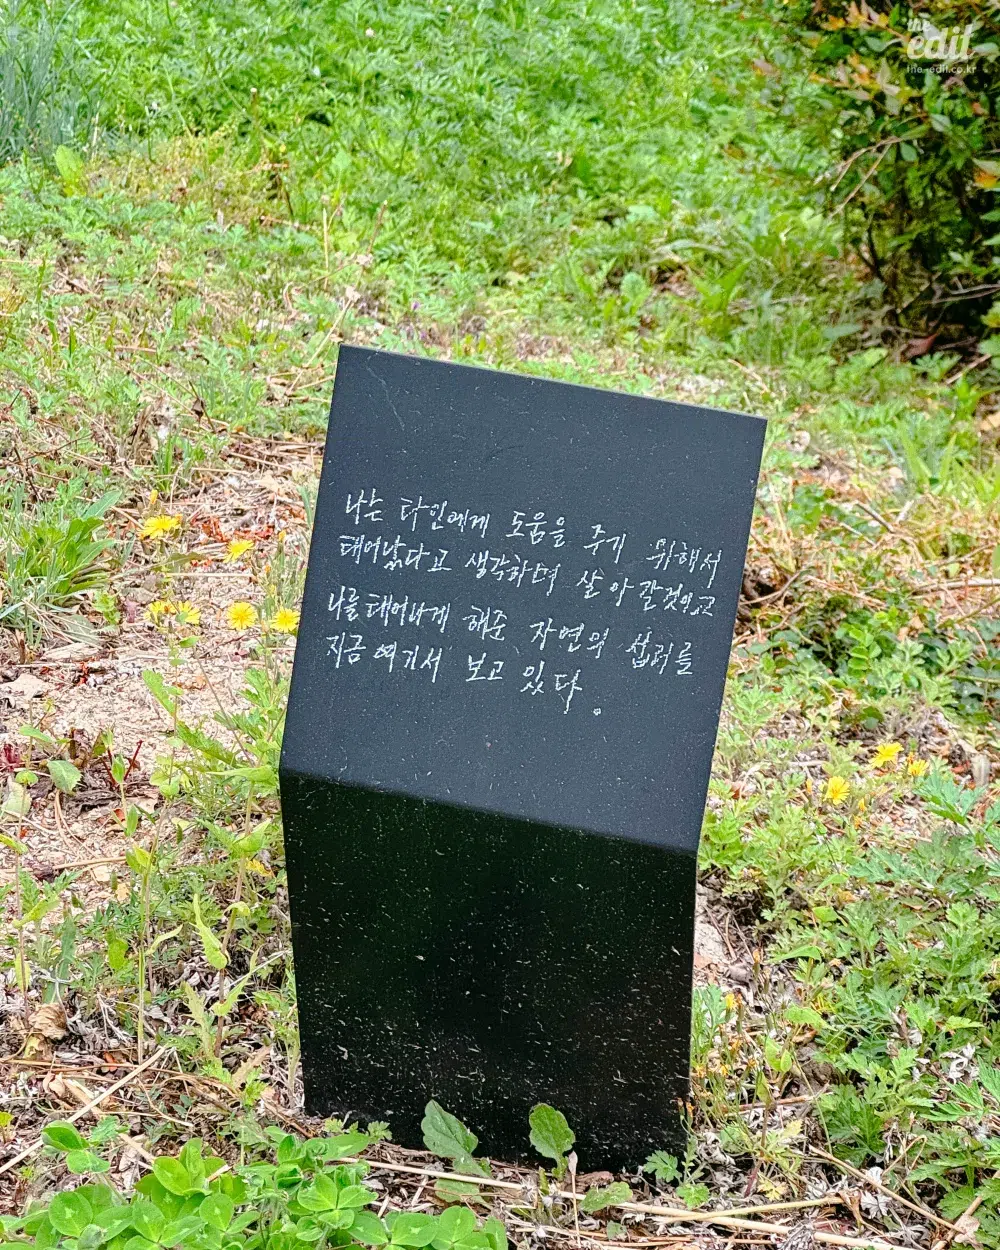 the edit
the-edit.co.kr
나는 타인에게 도움을 주기 위해서
태어났다고 생각하며 살아갈것이고
나를 태어나게 해준 자연의 섭리를
지금 여기서 보고 있다.